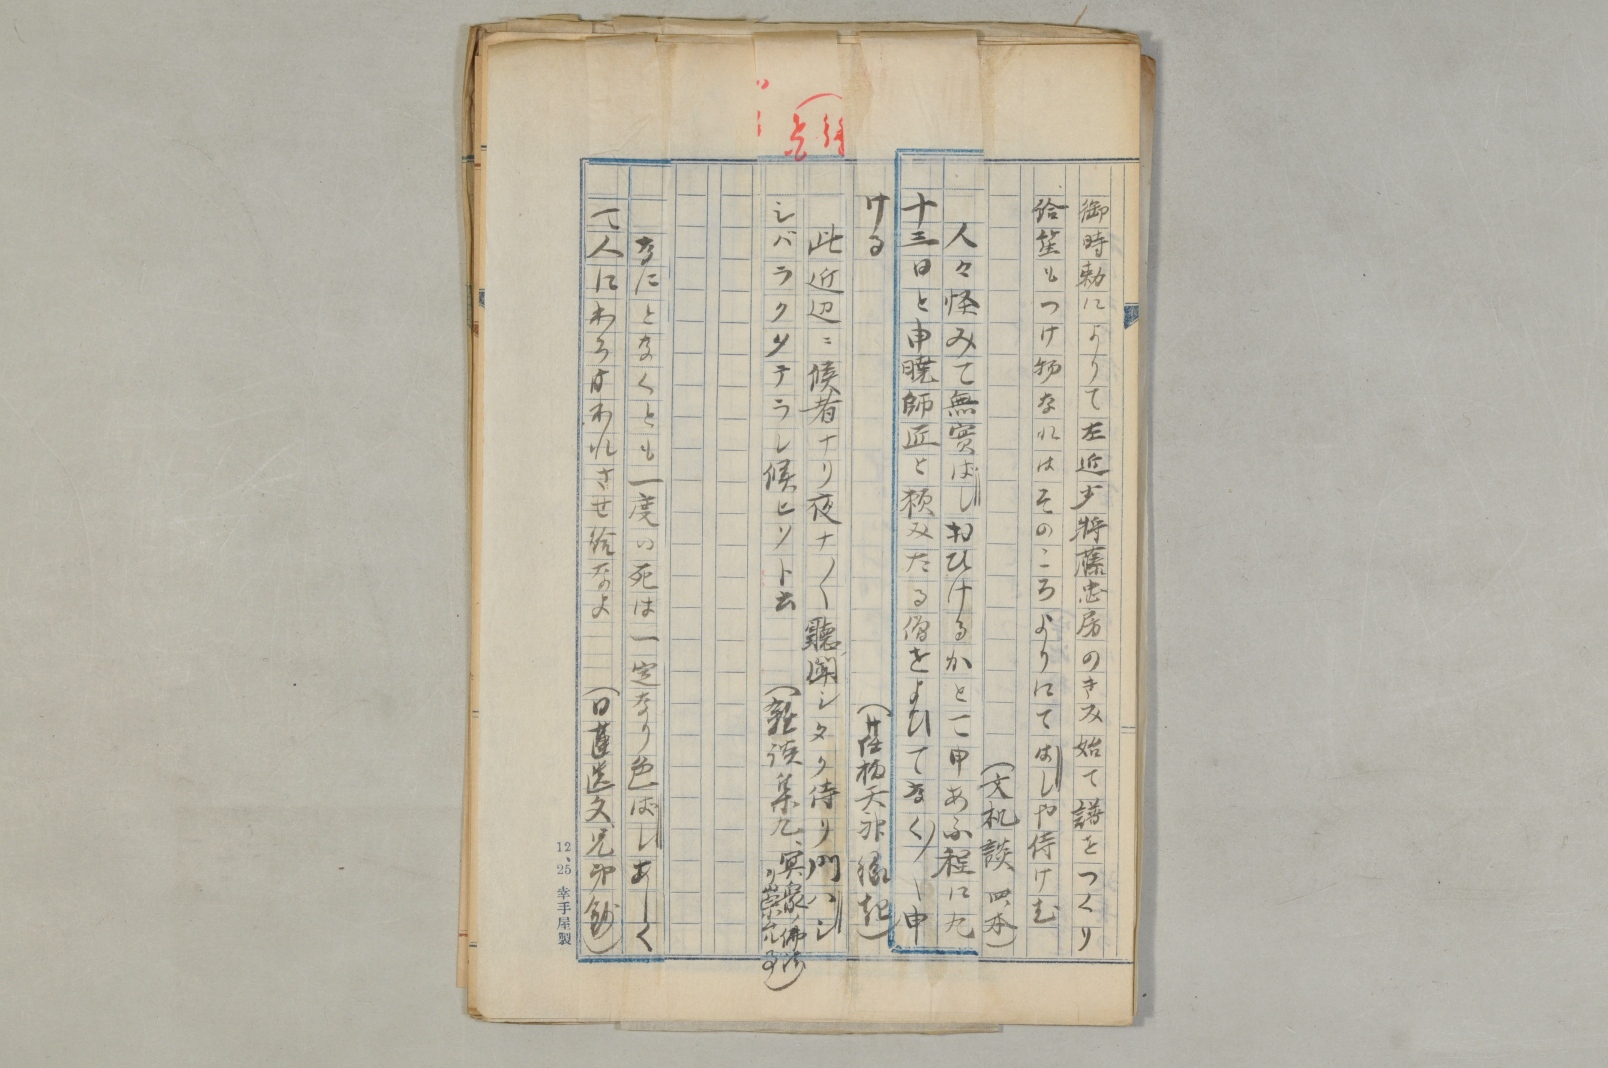 御時勅によりて左近少将藤忠房のきみ始て譜をつくり
給笙もつけ物なれはそのころよりにてはしや侍けむ
(文机談 四本)
人々怪みて無実ばしおひけるかとて申あふ程に九
十三日と申暁師匠と頼みたる僧をよひてなく〱申
ける
(荏柄天神縁起)
此近辺ニ候者ナリ夜ナ〱聴聞シタク侍リ門バシ
シバラクタテラレ候ヒソト云
(雑談集九、冥衆ノ佛法ヲ崇ル事)
なにとなくとも一度の死は一定なり色ばしあしく
て人にわらはれさせ給なよ
(日蓮遺文兄弟鈔)
12、25 幸手屋製